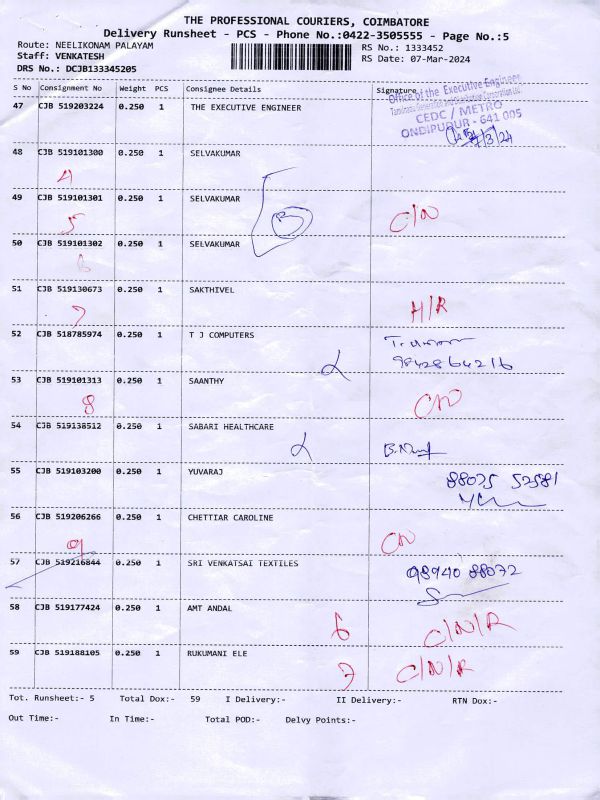 THE PROFESSIONAL COURIERS, COIMBATORE
Delivery Runsheet - PCS - Phone No.:0422-3505555 - Page No.:5
Route: NEELIKONAM PALAYAM RS No.: 1333452
Staff: VENKATESH RS Date: 07-Mar-2024
DRS No.: DCJB133345205
S No Consignment No Weight PCS Consignee Details Signature
Office of the Executive Engineer
47 CJB 519203224 0.250 1 THE EXECUTIVE ENGINEER
CEDC / METRO
ONDIPUDUR - 641 005
48 CJB 519101300 0.250 1 SELVAKUMAR
4
49 CJB 519101301 0.250 1 SELVAKUMAR
5 C/N
50 CJB 519101302 0.250 1 SELVAKUMAR
6
51 CJB 519130673 0.250 1 SAKTHIVEL
7 H/R
52 CJB 518785974 0.250 1 T J COMPUTERS
9842864216
53 CJB 519101313 0.250 1 SAANTHY
8 C/N
54 CJB 519138512 0.250 1 SABARI HEALTHCARE
55 CJB 519103200 0.250 1 YUVARAJ
88075 52581
56 CJB 519206266 0.250 1 CHETTIAR CAROLINE
9 CN
57 CJB 519216844 0.250 1 SRI VENKATSAI TEXTILES
98940 88072
58 CJB 519177424 0.250 1 AMT ANDAL
6 C/N/R
59 CJB 519188105 0.250 1 RUKUMANI ELE
7 C/N/R
Tot. Runsheet:- 5 Total Dox:- 59 I Delivery:- II Delivery:- RTN Dox:-
Out Time:- In Time:- Total POD:- Delvy Points:-